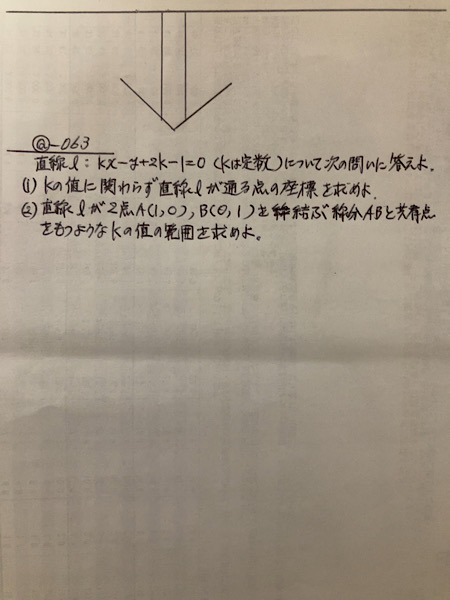 ②-063
直線ℓ: kx-y+2k-1=0 (kは定数)について次の問いに答えよ.
(1) kの値に関わらず直線ℓが通る点の座標を求めよ.
(2) 直線ℓが2点A(1,0), B(0,1)を結ぶ線分ABと共有点
をもつようなkの値の範囲を求めよ。